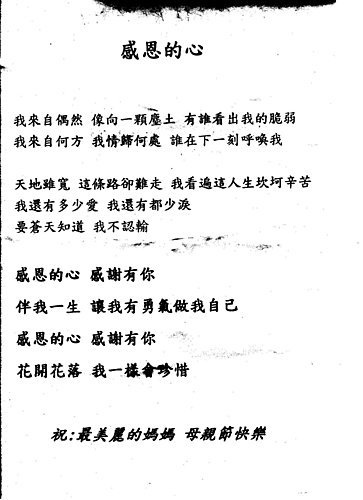 感恩的心
我來自偶然 像向一顆塵土 有誰看出我的脆弱
我來自何方 我情歸何處 誰在下一刻呼喚我
天地雖寬 這條路卻難走 我看遍這人生坎坷辛苦
我還有多少愛 我還有都少淚
要蒼天知道 我不認輸
感恩的心 感謝有你
伴我一生 讓我有勇氣做我自己
感恩的心 感謝有你
花開花落 我一樣會珍惜
祝:最美麗的媽媽 母親節快樂